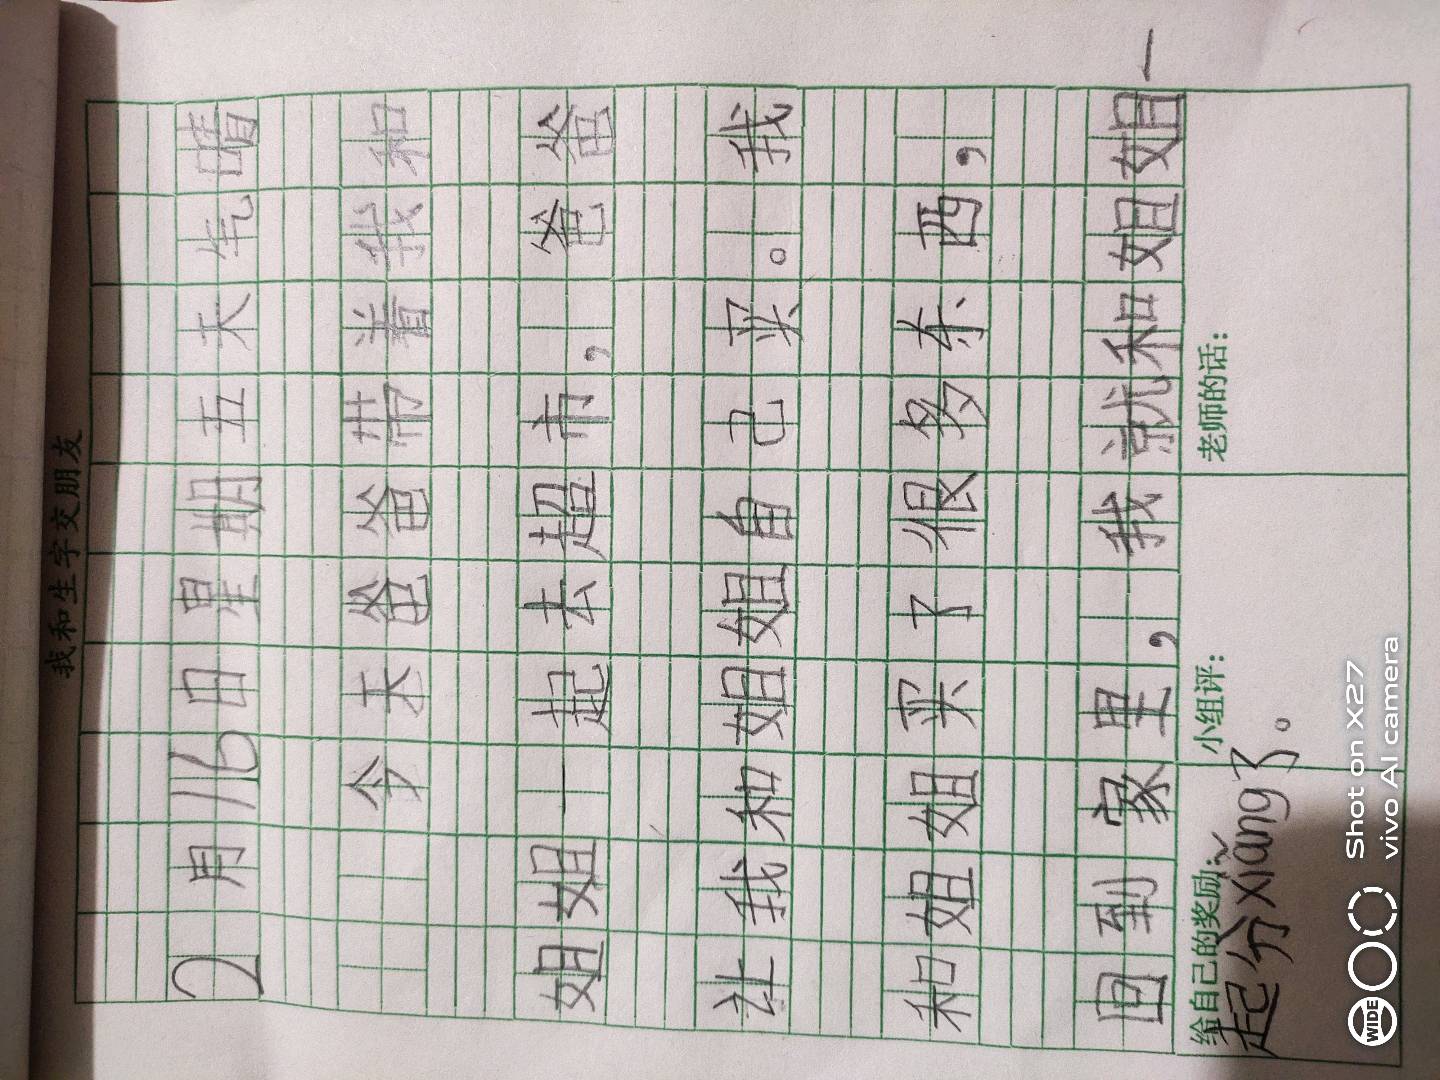 我和生字交朋友
2月16日星期五天气晴
今天爸爸带着我和
姐姐一起去超市，爸爸
让我和姐姐自己买。我
和姐姐买了很多东西，
回到家里，我就和姐姐一
给自己的奖励： 小组评： 老师的话：
起分xiǎng了。
WIDE Shot on X27
vivo AI camera